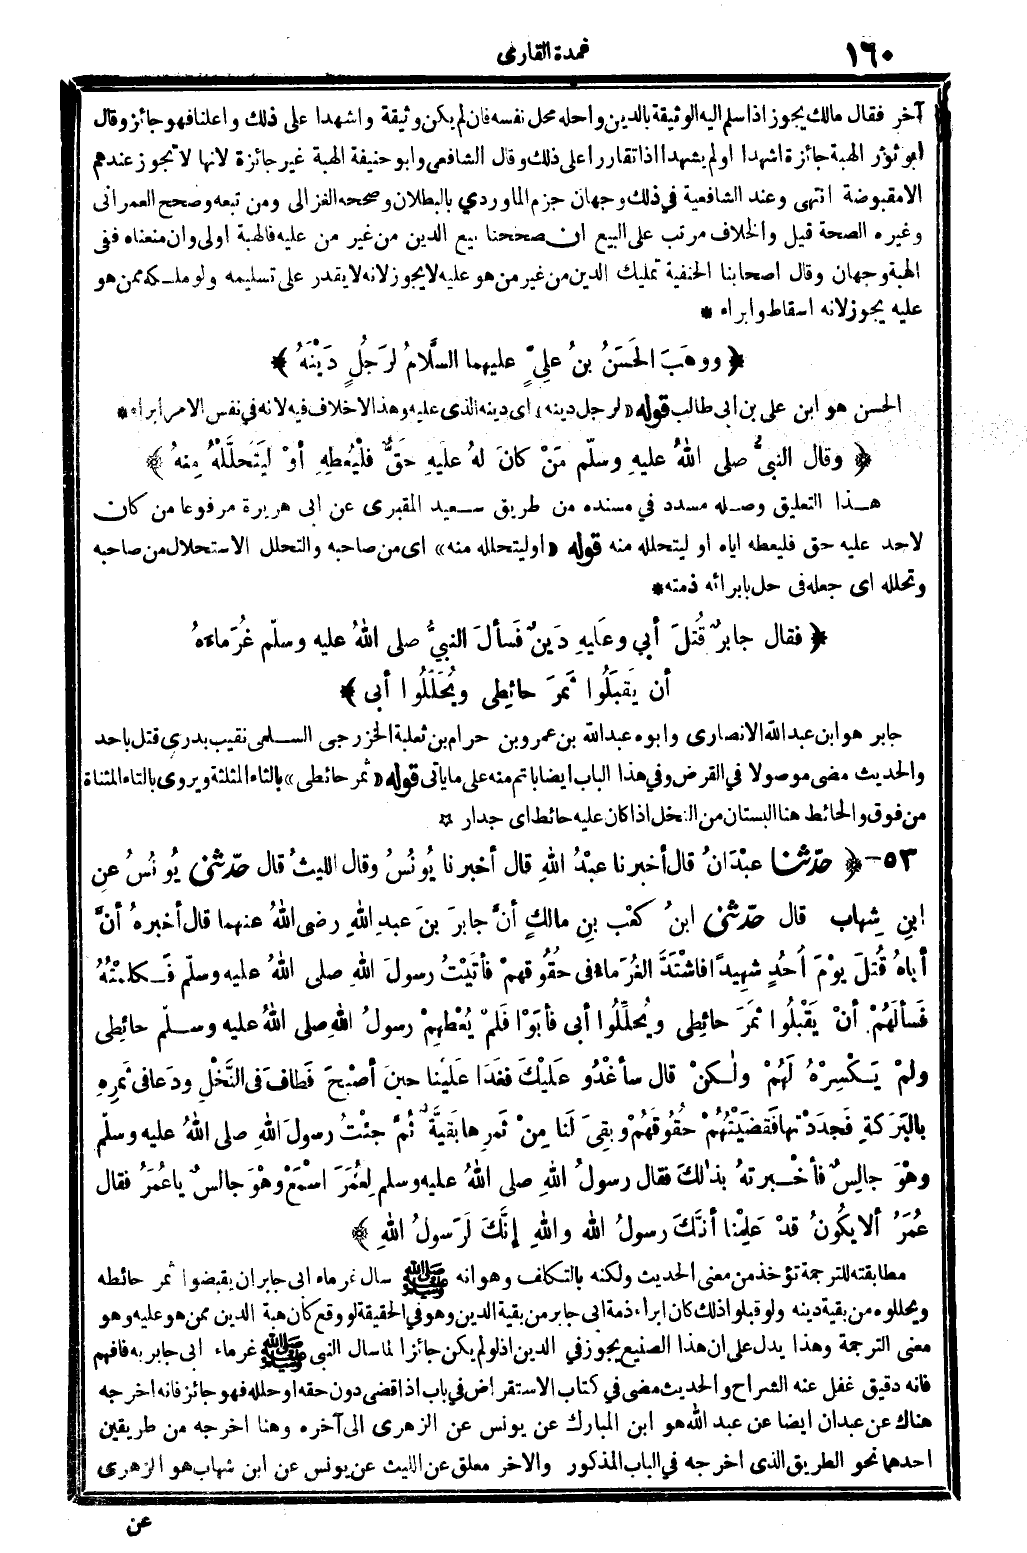 ١٦٠
عمدة القارى
آخر فقال مالك يجوز اذا سلم اليه الوثيقة بالدين واحله محل نفسه فان لم يكن وثيقة واشهدا على ذلك واعلنا فهو جائز وقال
ابو ثور الهبة جائزة اشهدا او لم يشهدا اذا تقاررا على ذلك وقال الشافعى وابو حنيفة الهبة غير جائزة لانها لا تجوز عندهم
الا مقبوضة انتهى وعند الشافعية في ذلك وجهان جزم الماوردي بالبطلان وصححه الغزالى ومن تبعه وصحح العمرانى
وغيره الصحة قيل والخلاف مرتب على البيع ان صححنا بيع الدين من غير من عليه فالهبة اولى وان منعناه ففى
الهبة وجهان وقال اصحابنا الحنفية تمليك الدين من غير من هو عليه لا يجوز لانه لا يقدر على تسليمه ولو ملكه ممن هو
عليه يجوز لانه اسقاط وابراء *
﴿ ووهَبَ الحَسَنُ بنُ علِىٍّ عليهما السَّلَامُ لرَجُلٍ دَيْنَهُ ﴾
الحسن هو ابن على بن ابى طالب قوله «لرجل دينه» اى دينه الذى عليه وهذا لا خلاف فيه لانه في نفس الامر ابراء *
﴿ وقال النبىُّ صلى اللهُ عليهِ وسلّم مَنْ كانَ لهُ عليهِ حَقٌّ فلْيُعطهِ أوْ ليَتَحلَّلْهُ مِنهُ ﴾
هذا التعليق وصله مسدد في مسنده من طريق سعيد المقبرى عن ابى هريرة مرفوعا من كان
لاحد عليه حق فليعطه اياه او ليتحلله منه قوله «اوليتحلله منه» اى من صاحبه والتحلل الاستحلال من صاحبه
وتحلله اى جعله فى حل بابرائه ذمته *
﴿ فقال جابرٌ قُتلَ أبي وعليهِ دَينٌ فَسألَ النبيُّ صلى اللهُ عليه وسلّم غُرَماءَهُ
أن يَقبَلُوا ثمرَ حائِطى ويُحَلِّلُوا أبى ﴾
جابر هو ابن عبد الله الانصارى وابوه عبد الله بن عمرو بن حرام بن ثعلبة الخزرجى السلمى نقيب بدرى قتل باحد
والحديث مضى موصولا في القرض وفي هذا الباب ايضا باتم منه على ما ياتى قوله «ثمر حائطى» بالثاء المثلثة ويروى بالتاء المثناة
من فوق والحائط هنا البستان من النخل اذا كان عليه حائط اى جدار ✡
٥٣ - ﴿ حدّثنا عبْدَانُ قال أخبرنا عبْدُ اللهِ قال أخبرنا يُونُسُ وقال الليثُ قال حدّثنى يُونُسُ عنِ
ابنِ شِهاب قال حدّثنى ابنُ كعْب بنِ مالكٍ أنَّ جابرَ بنَ عبدِ اللهِ رضى اللهُ عنهما قال أخبرهُ أنَّ
أباهُ قُتلَ يوْمَ أُحُدٍ شهيدًا فاشْتَدَّ الغُرَماءُ فى حقُوقهمْ فأتَيْتُ رسولَ اللهِ صلى اللهُ عليهِ وسلّم فكلمْتُهُ
فَسألَهُمْ أنْ يَقْبلُوا ثمَرَ حائِطى ويُحلِّلُوا أبى فأبَوْا فلَمْ يُعْطهِمْ رسولُ اللهِ صلى اللهُ عليه وسلّم حائِطى
ولمْ يَكْسِرْهُ لَهُمْ ولكنْ قال سأغْدُو عليْكَ فغَدَا علَيْنا حينَ أصْبحَ فَطافَ فى النَّخْلِ ودعا فى ثمرِهِ
بالبَرَكةِ فَجدَدْتها فقضَيْتُهُمْ حقُوقَهُمْ وبقِىَ لَنا مِنْ ثمرِها بَقيَّةٌ ثمَّ جئْتُ رسولَ اللهِ صلى اللهُ عليه وسلّم
وهْوَ جالِسٌ فأخْبرتهُ بذلكَ فقال رسولُ اللهِ صلى اللهُ عليه وسلم لعُمَرَ اسْمَعْ وهْوَ جالسٌ ياعُمَرُ فقال
عُمَرُ ألا يكُونُ قدْ علِمْنا أنكَ رسولُ الله واللهِ إنَّكَ لَرَسولُ اللهِ ﴾
مطابقته للترجمة تؤخذ من معنى الحديث ولكنه بالتكلف وهو انه ﷺ سال غرماء ابى جابر ان يقبضوا ثمر حائطه
ويحللوه من بقية دينه ولو قبلوا ذلك كان ابراء ذمة ابى جابر من بقية الدين وهو في الحقيقة لو وقع كان هبة الدين ممن هو عليه وهو
معنى الترجمة وهذا يدل على ان هذا الصنيع يجوز في الدين اذ لو لم يكن جائزا لما سال النبى ﷺ غرماء ابى جابر به فافهم
فانه دقيق غفل عنه الشراح والحديث مضى في كتاب الاستقراض في باب اذا قضى دون حقه او حلله فهو جائز فانه اخرجه
هناك عن عبدان ايضا عن عبد الله هو ابن المبارك عن يونس عن الزهرى الى آخره وهنا اخرجه من طريقين
احدهما نحو الطريق الذى اخرجه في الباب المذكور والاخر معلق عن الليث عن يونس عن ابن شهاب هو الزهرى
عن